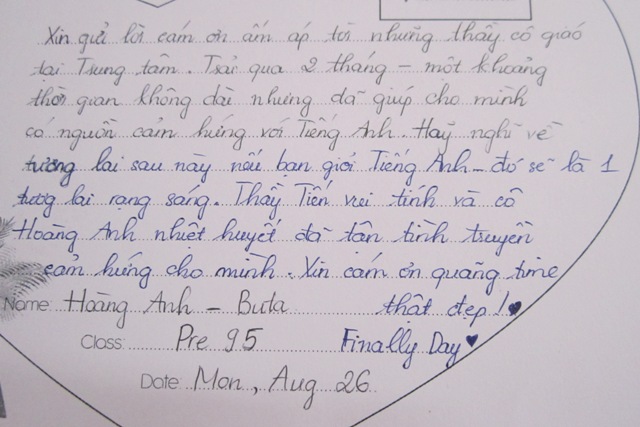 Xin gửi lời cám ơn ấm áp tới những thầy cô giáo
tại Trung tâm. Trải qua 2 tháng – một khoảng
thời gian không dài nhưng đã giúp cho mình
có nguồn cảm hứng với Tiếng Anh. Hãy nghĩ về
tương lai sau này nếu bạn giỏi Tiếng Anh – đó sẽ là 1
tương lai rạng sáng. Thầy Tiến vui tính và cô
Hoàng Anh nhiệt huyết đã tận tình truyền
cảm hứng cho mình. Xin cám ơn quãng time
thật đẹp! ♥
Name: Hoàng Anh – Buta
Class: Pre 95 Finally Day ♥
Date Mon, Aug 26